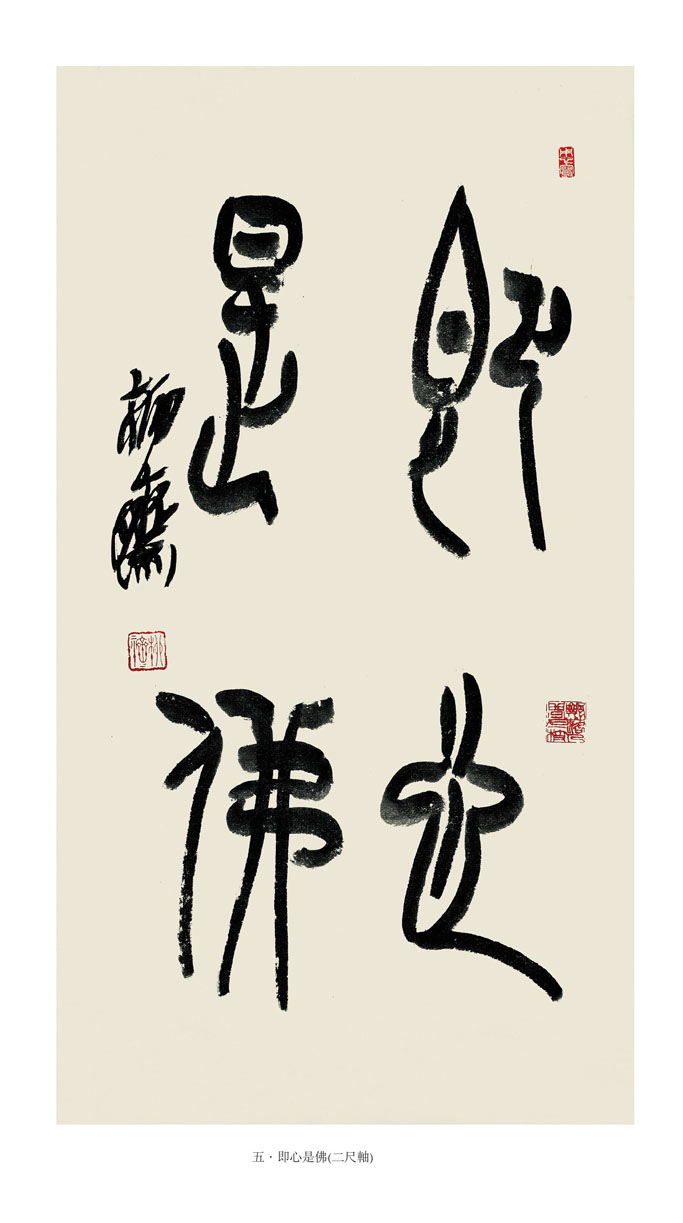 即心
是佛
五·即心是佛(二尺軸)